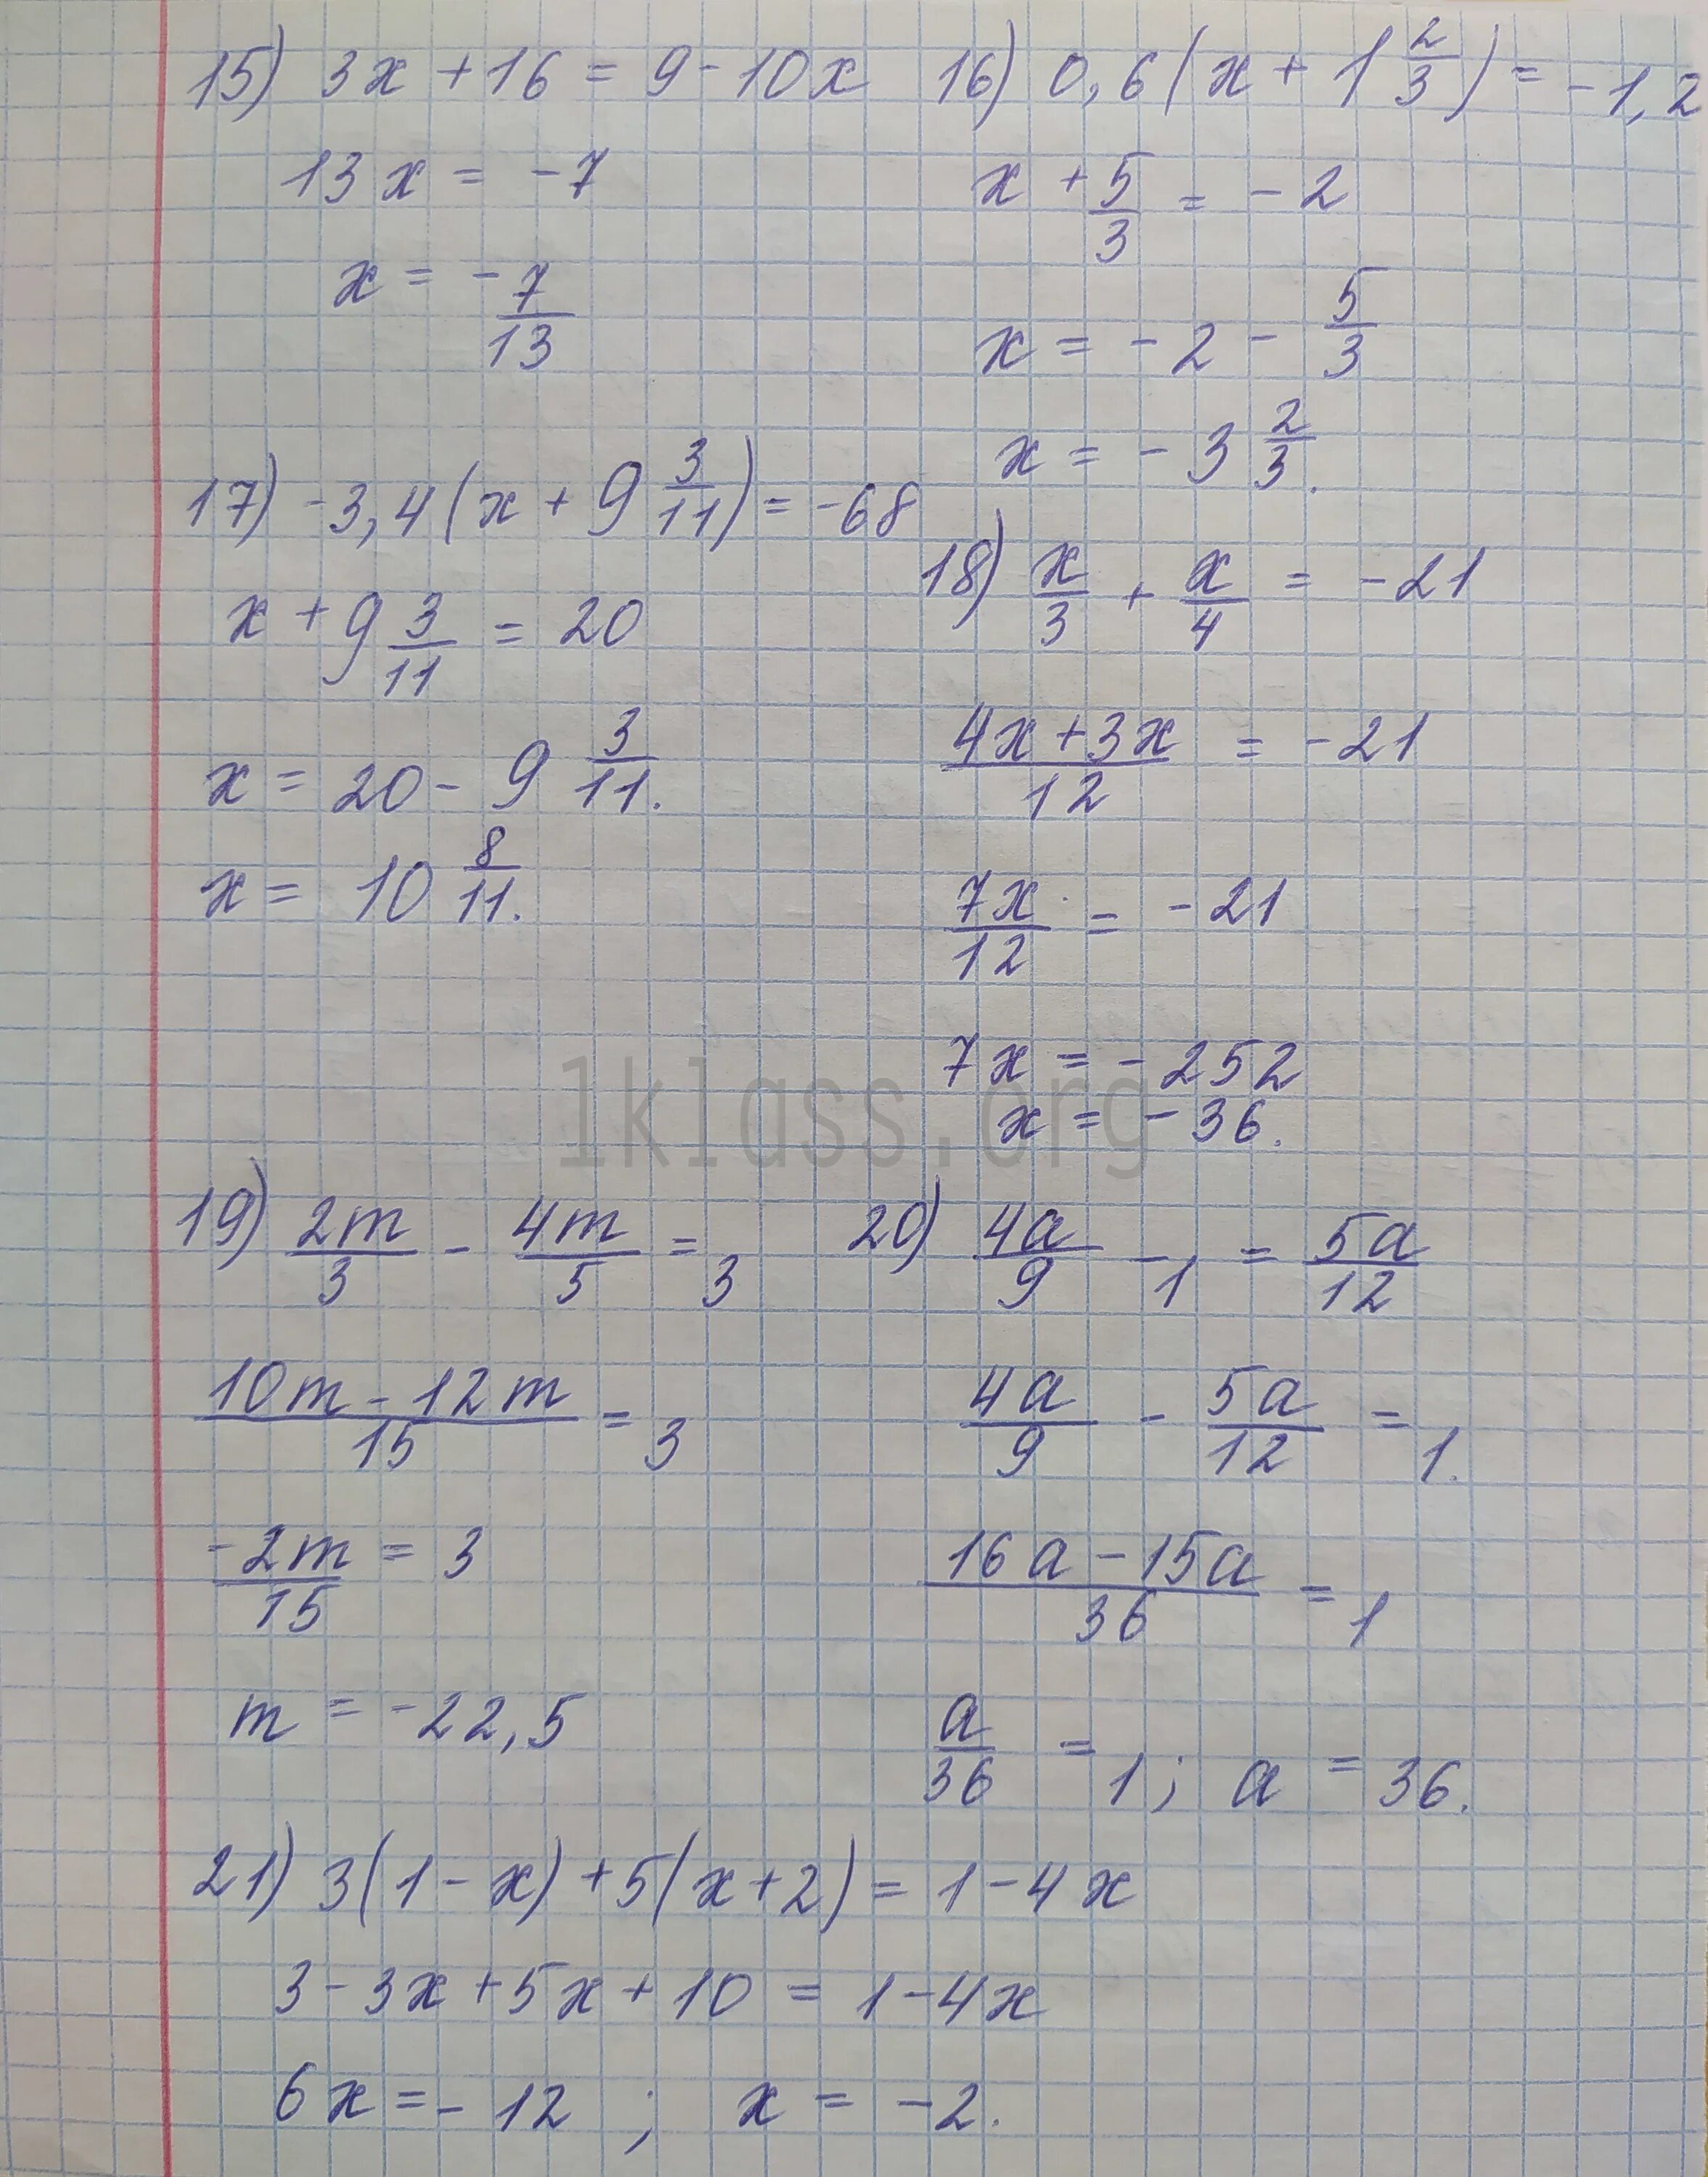 15) 3x + 16 = 9 - 10x
13x = -7
x = - 7/13
16) 0,6(x + 1 2/3) = -1,2
x + 5/3 = -2
x = -2 - 5/3
x = -3 2/3.
17) -3,4(x + 9 3/11) = -68
x + 9 3/11 = 20
x = 20 - 9 3/11.
x = 10 8/11.
18) x/3 + x/4 = -21
(4x + 3x)/12 = -21
7x/12 = -21
7x = -252
x = -36.
1klass.org
19) 2m/3 - 4m/5 = 3
(10m - 12m)/15 = 3
-2m/15 = 3
m = -22,5
20) 4a/9 - 1 = 5a/12
4a/9 - 5a/12 = 1.
(16a - 15a)/36 = 1
a/36 = 1; a = 36.
21) 3(1 - x) + 5(x + 2) = 1 - 4x
3 - 3x + 5x + 10 = 1 - 4x
6x = - 12 ; x = -2.